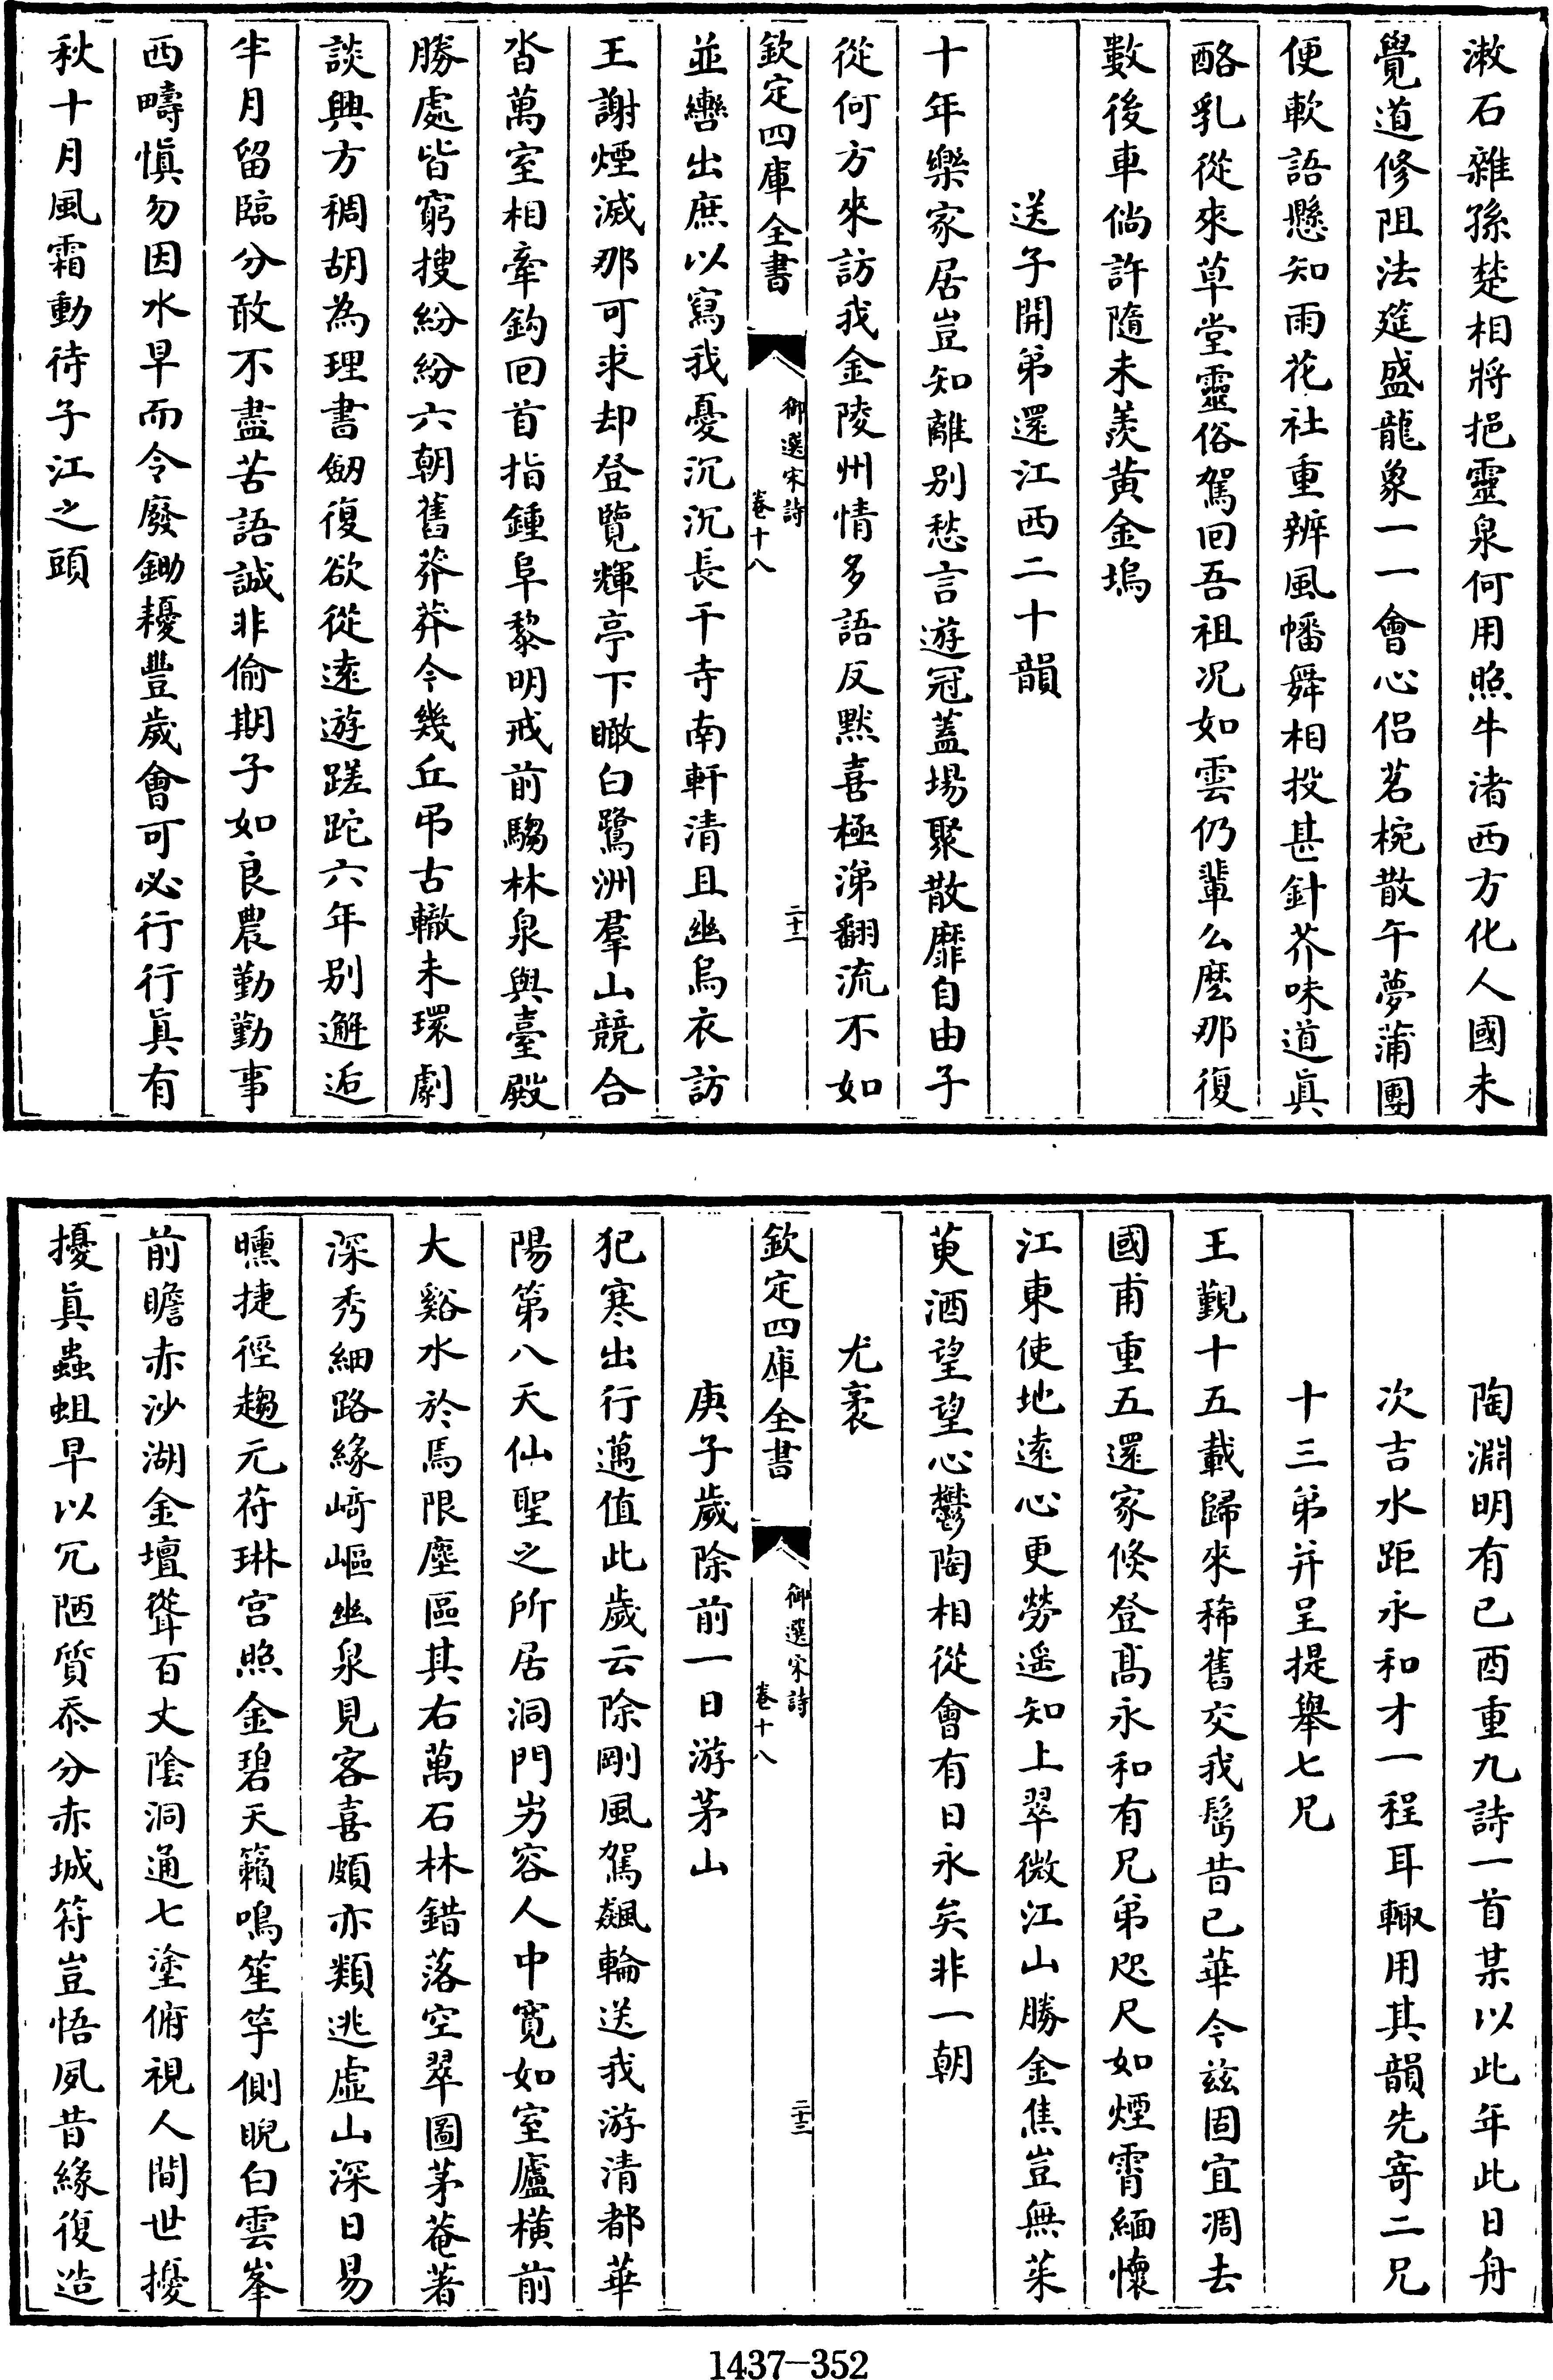 漱石雜孫楚相將挹靈泉何用照牛渚西方化人國未
覺道修阻法筵盛龍象一一會心侶茗椀散午夢蒲團
便軟語懸知雨花社重辨風幡舞相投甚針芥味道真
酪乳從來草堂靈俗駕回吾祖况如雲仍輩么麽那復
數後車倘許隨未羨黄金塢
送子開弟還江西二十韻
十年樂家居豈知離别愁言遊冠蓋場聚散靡自由子
從何方來訪我金陵州情多語反默喜極涕翻流不如
欽定四庫全書
御選宋詩
卷十八
二十二
並轡出庶以寫我憂沉沉長干寺南軒清且幽烏衣訪
王謝煙滅那可求却登覽輝亭下瞰白鷺洲羣山競合
沓萬室相牽鈎回首指鍾阜黎明戒前騶林泉與臺殿
勝處皆窮搜紛紛六朝舊莽莽今幾丘弔古轍未環劇
談興方稠胡為理書劒復欲從逺遊蹉跎六年别邂逅
半月留臨分敢不盡苦語誠非偷期子如良農勤勤事
西疇愼勿因水旱而令廢鋤耰豐歲會可必行行眞有
秋十月風霜動待子江之頭
陶淵明有己酉重九詩一首某以此年此日舟
次吉水距永和才一程耳輙用其韻先寄二兄
十三弟并呈提舉七兄
王觀十五載歸來稀舊交我髩昔已華今兹固宜凋去
國甫重五還家倐登髙永和有兄弟咫尺如煙霄緬懷
江東使地逺心更勞遥知上翠微江山勝金焦豈無茱
萸酒望望心鬱陶相從會有日永矣非一朝
尤袤
欽定四庫全書
御選宋詩
卷十八
二十三
庚子歲除前一日游茅山
犯寒出行邁值此歲云除剛風駕飈輪送我游清都華
陽第八天仙聖之所居洞門屴容人中寛如室廬横前
大谿水於焉限塵區其右萬石林錯落空翠圖茅菴著
深秀細路緣﨑嶇幽泉見客喜頗亦類逃虚山深日易
曛捷徑趨元符琳宫照金碧天籟鳴笙竽側睨白雲峯
前瞻赤沙湖金壇聳百丈陰洞通七塗俯視人間世擾
擾眞蟲蛆早以冗陋質忝分赤城符豈悟夙昔緣復造
1437—352